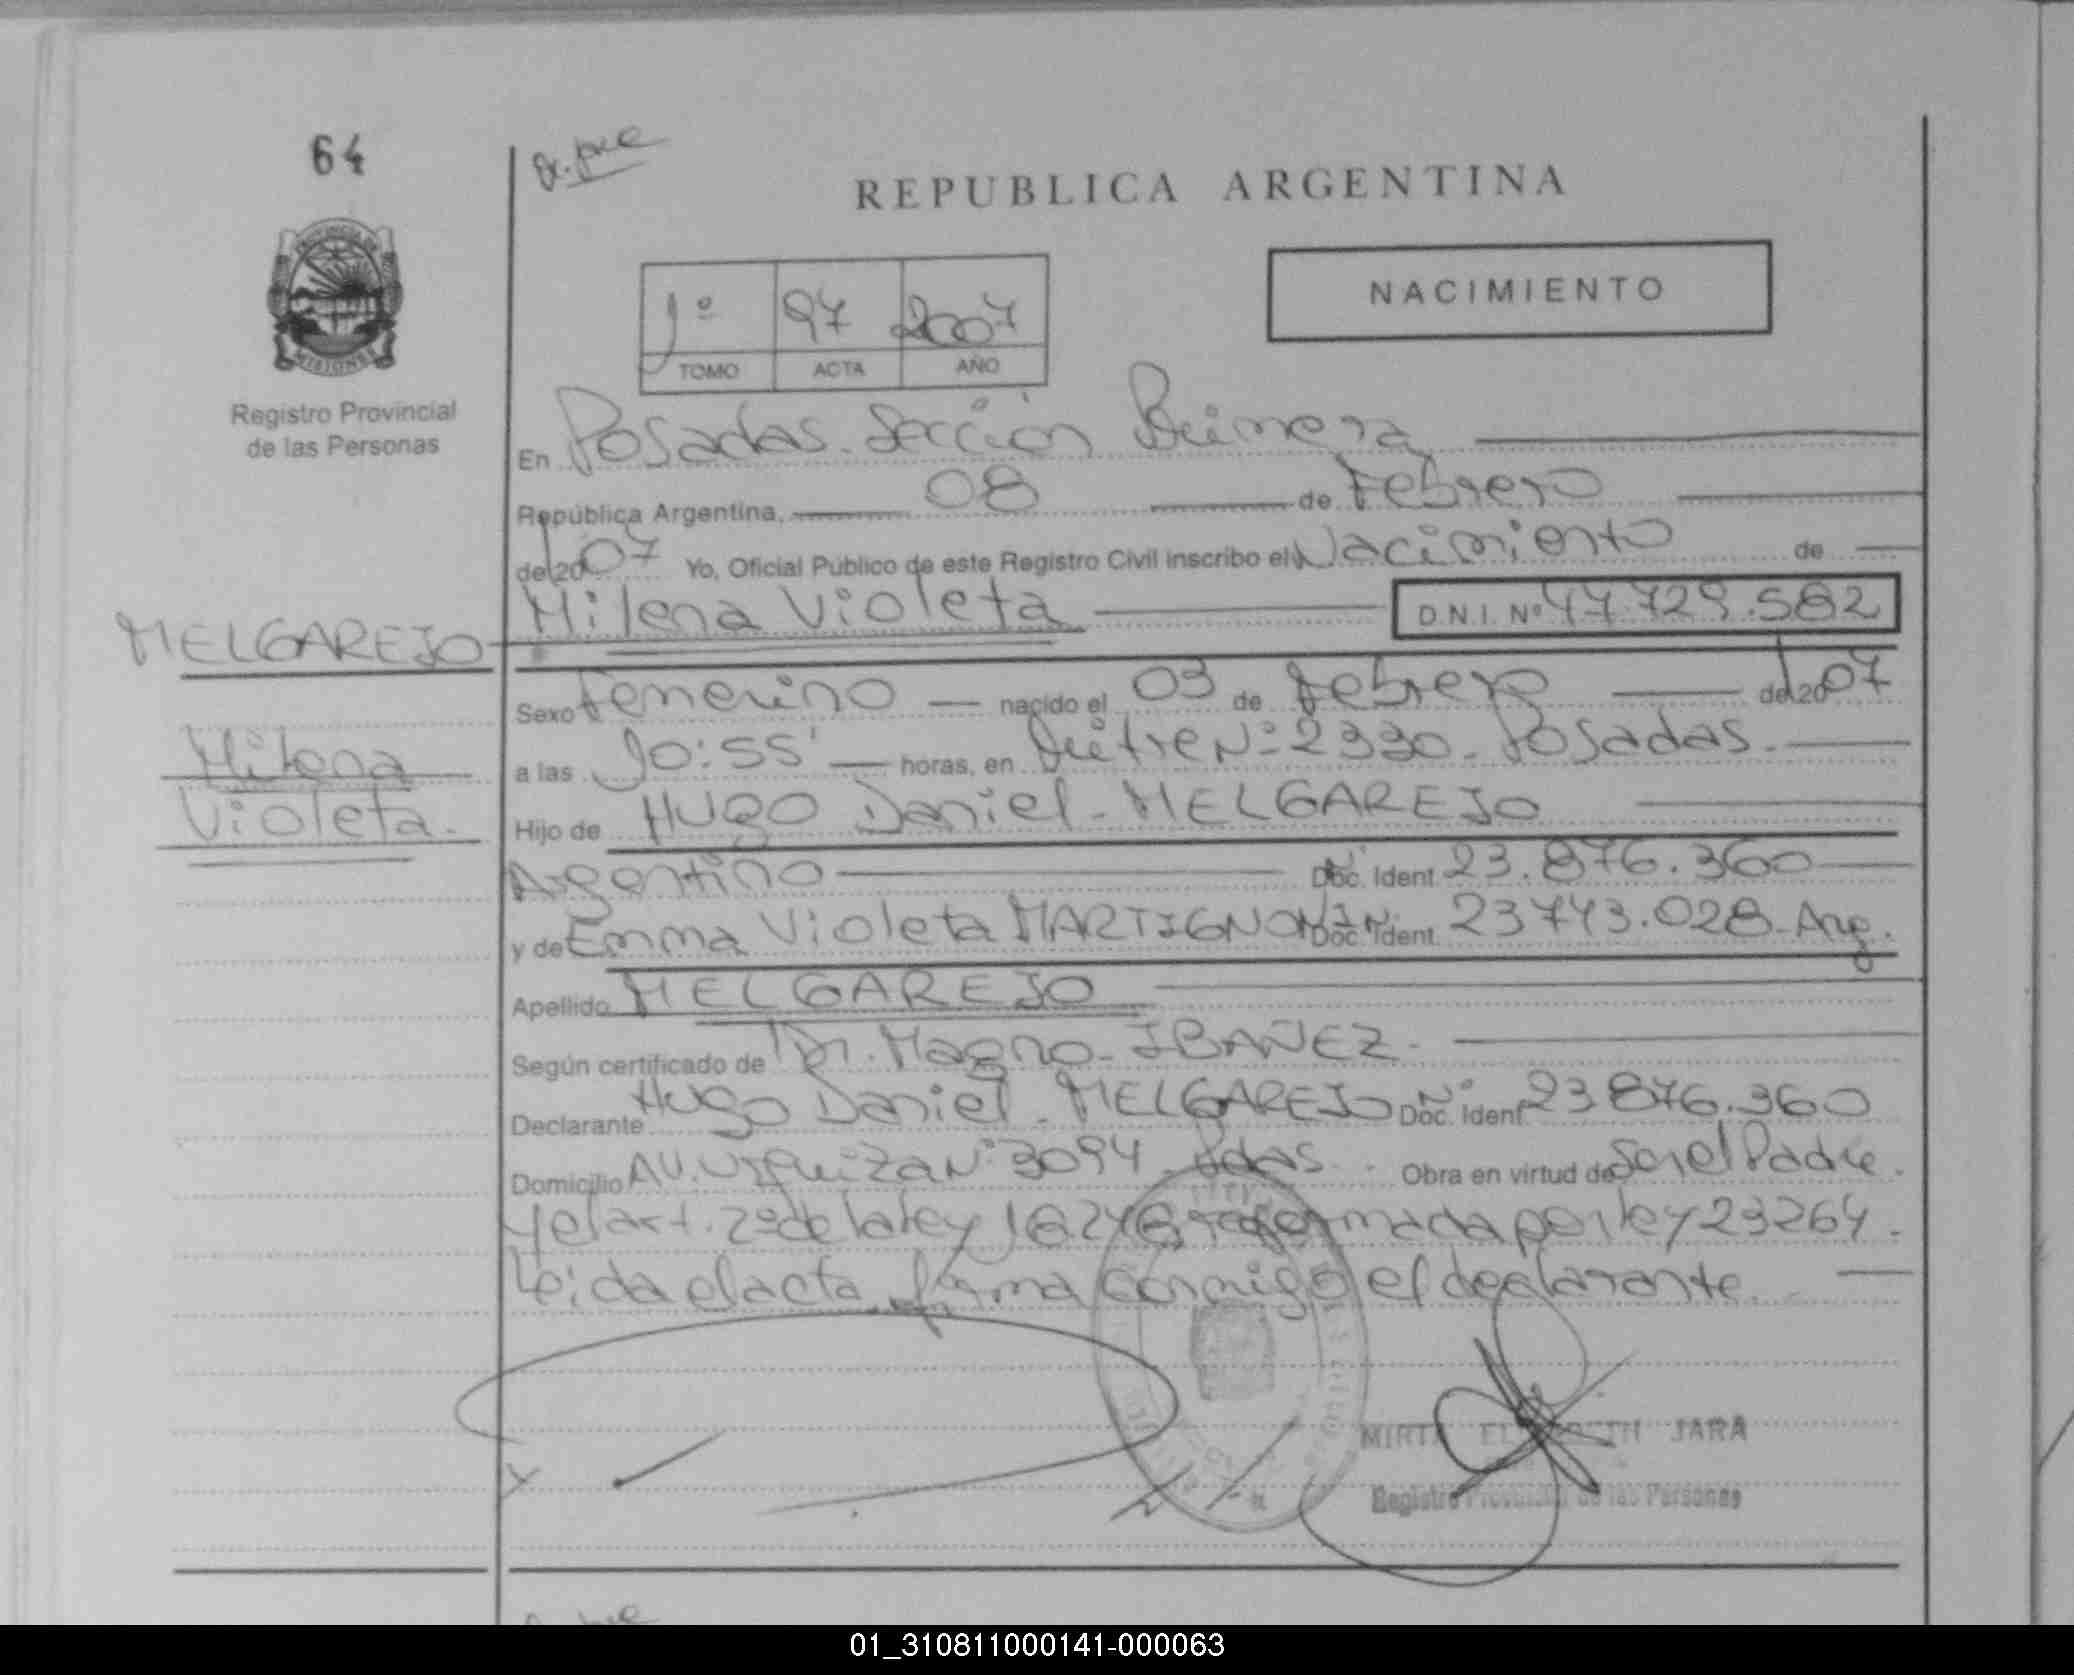 64
REPUBLICA ARGENTINA
PROVINCIA DE
MISIONES
Registro Provincial
de las Personas
1º 97 2007
TOMO ACTA AÑO
NACIMIENTO
En Posadas. Sección Primera
República Argentina, 08 de Febrero
del 2007 Yo, Oficial Público de este Registro Civil inscribo el Nacimiento de
Milena Violeta D.N.I. Nº 47.729.582
MELGAREJO
Milena
Violeta.
Sexo femenino nacido el 03 de febrero del 2007
a las 10:55' horas, en Mitre Nº 2330. Posadas.
Hijo de Hugo Daniel - MELGAREJO
Argentino Doc. Ident. 23.876.360
y de Emma Violeta MARTIGNONI Doc. Ident. 23743.028 - Arg.
Apellido MELGAREJO
Según certificado de Dr. Magno - IBAÑEZ.
Declarante Hugo Daniel - MELGAREJO Nº Doc. Ident 23876.360
Domicilio AV. Urquiza Nº 3094. Pdas. Obra en virtud de Ser el Padre.
y el art. 2º de la ley reformada por ley 23264.
Leida el acta, firma conmigo el declarante
MIRTA JARA
Registro Provincial de las Personas
01_310811000141-000063